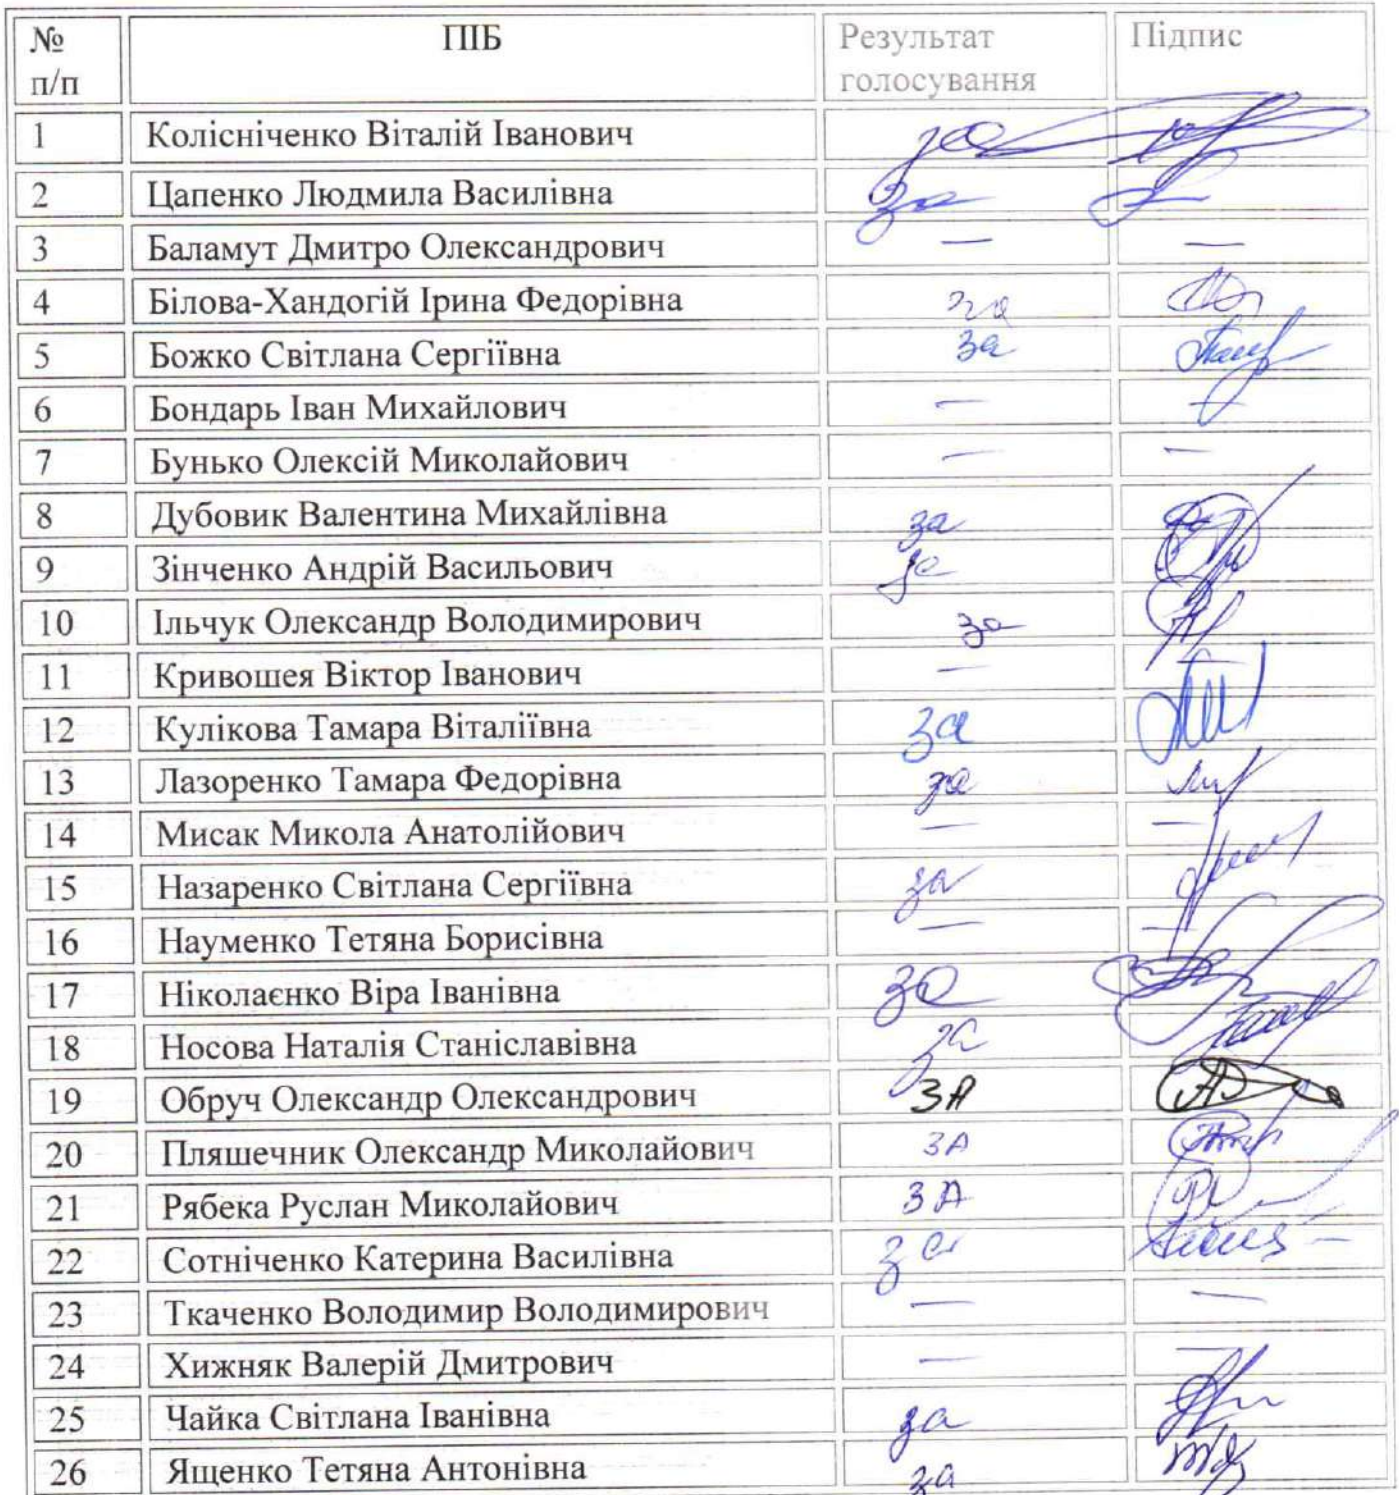 № п/п ПІБ Результат голосування Підпис
1 Колісніченко Віталій Іванович за
2 Цапенко Людмила Василівна за
3 Баламут Дмитро Олександрович — —
4 Білова-Хандогій Ірина Федорівна за
5 Божко Світлана Сергіївна за
6 Бондарь Іван Михайлович — —
7 Бунько Олексій Миколайович — —
8 Дубовик Валентина Михайлівна за
9 Зінченко Андрій Васильович за
10 Ільчук Олександр Володимирович за
11 Кривошея Віктор Іванович — —
12 Кулікова Тамара Віталіївна за
13 Лазоренко Тамара Федорівна за
14 Мисак Микола Анатолійович — —
15 Назаренко Світлана Сергіївна за
16 Науменко Тетяна Борисівна — —
17 Ніколаєнко Віра Іванівна за
18 Носова Наталія Станіславівна за
19 Обруч Олександр Олександрович ЗА
20 Пляшечник Олександр Миколайович ЗА
21 Рябека Руслан Миколайович ЗА
22 Сотніченко Катерина Василівна за
23 Ткаченко Володимир Володимирович — —
24 Хижняк Валерій Дмитрович — —
25 Чайка Світлана Іванівна за
26 Ященко Тетяна Антонівна за